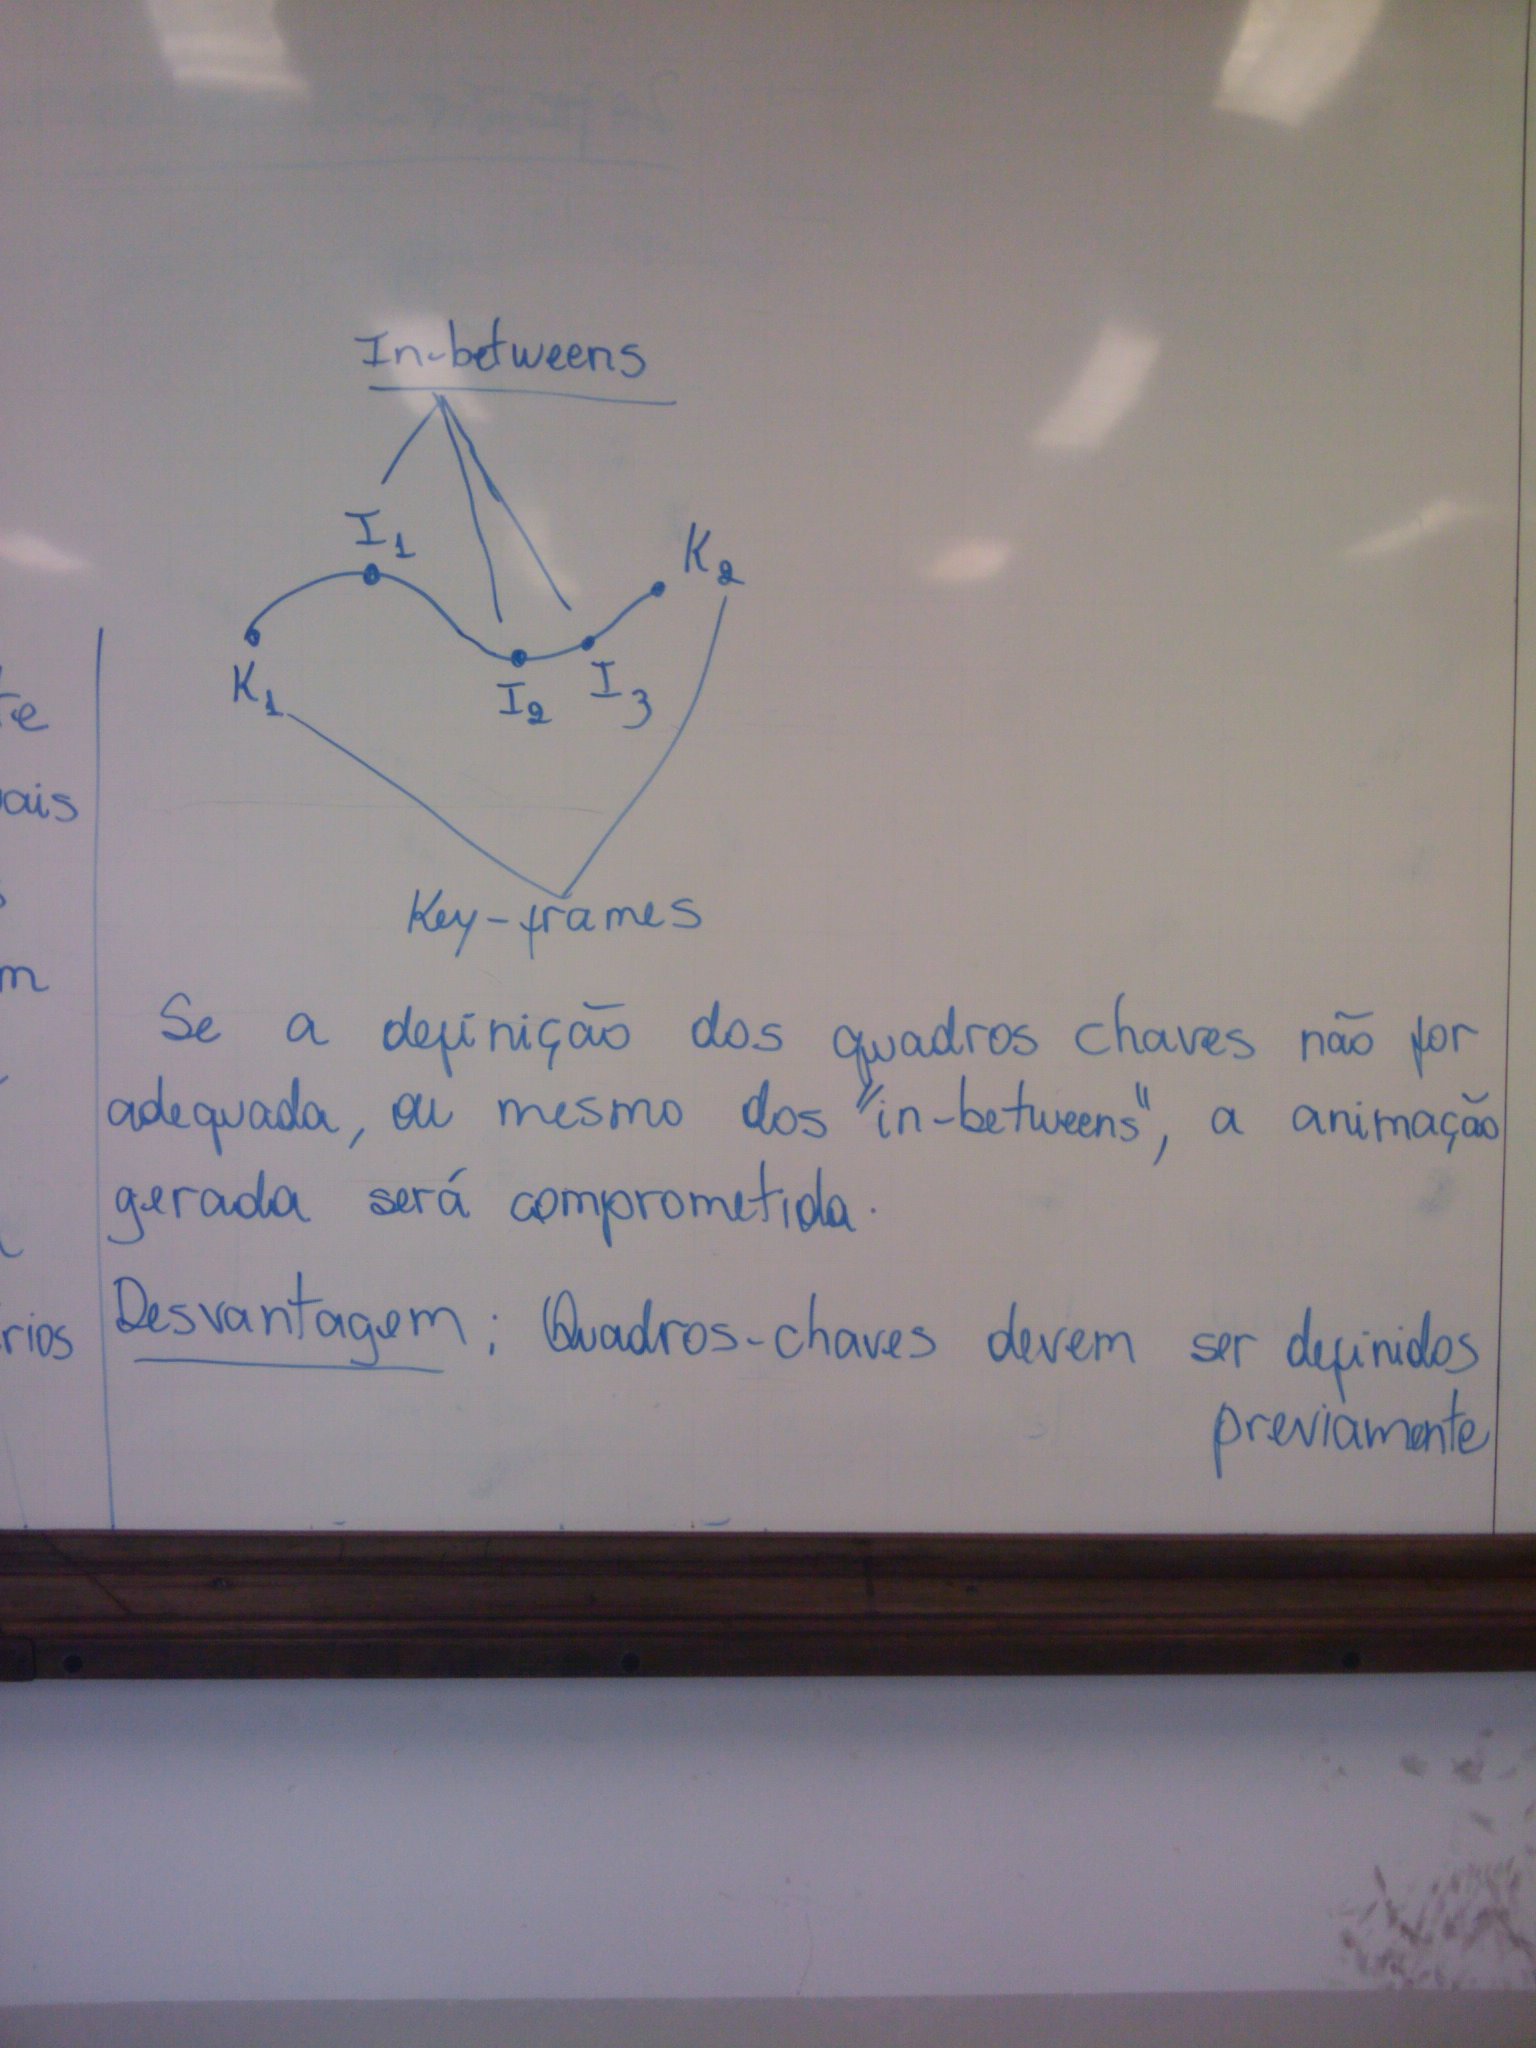 In-betweens
I1
K2
K1
I2
I3
Key-frames
Se a definição dos quadros chaves não for
adequada, ou mesmo dos "in-betweens", a animação
gerada será comprometida.
Desvantagem: Quadros-chaves devem ser definidos
previamente
te
ais
s
m
rios